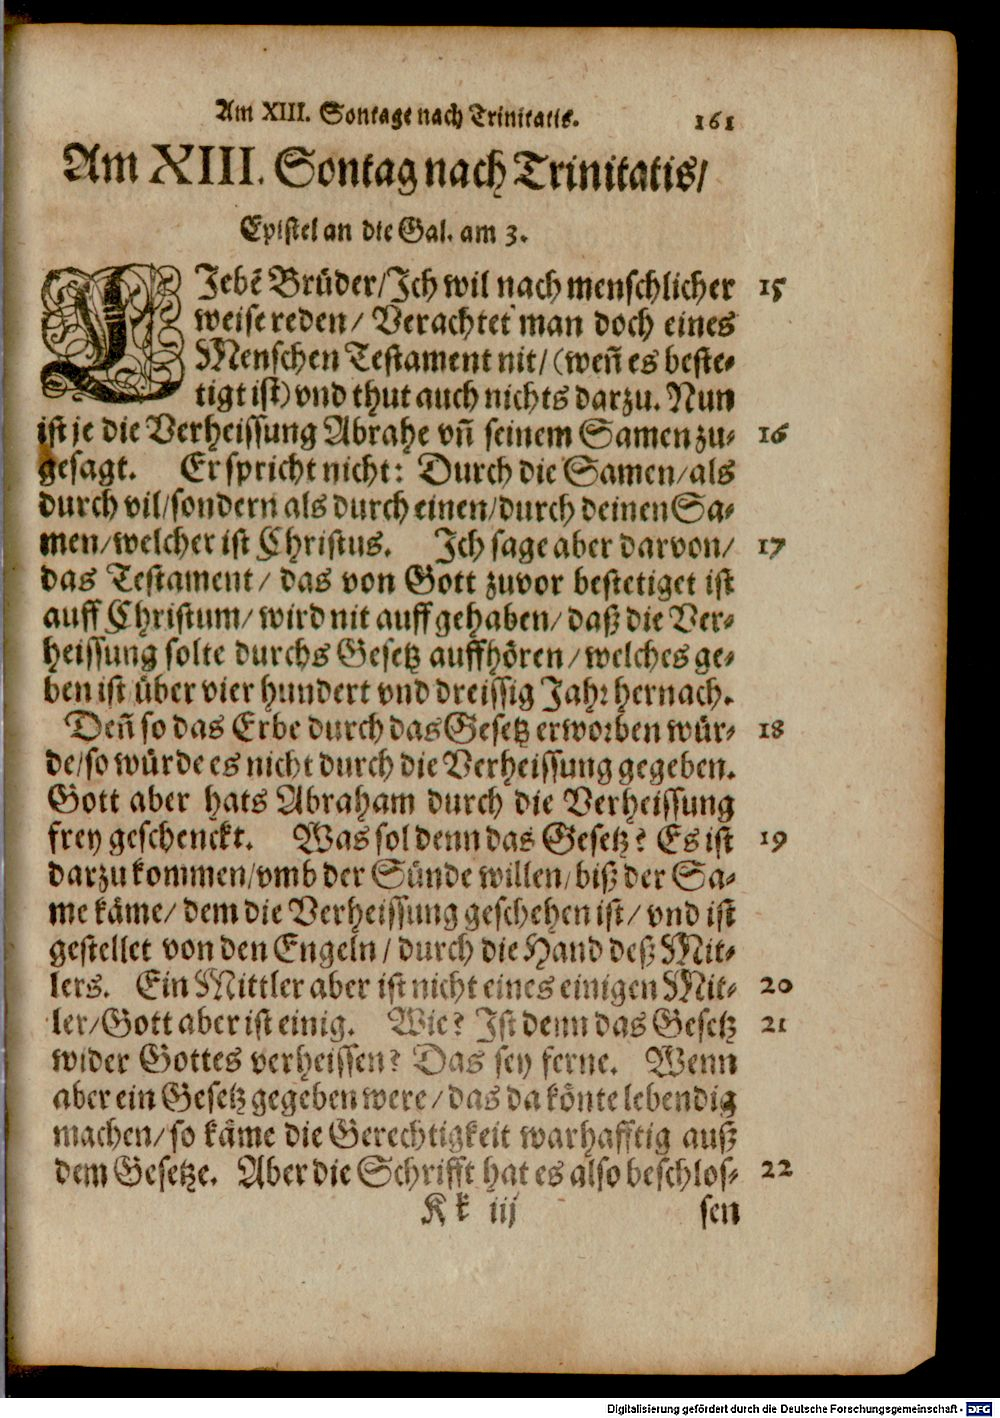 Am XIII. Sontage nach Trinitatis. 161
Am XIII. Sontag nach Trinitatis/
Epistel an die Gal. am 3.
LJebẽ Brüder/Jch wil nach menschlicher 15
weise reden/ Verachtet man doch eines
Menschen Testament nit/ (weñ es beste-
tigt ist) vnd thut auch nichts darzu. Nun
ist je die Verheissung Abrahe vñ seinem Samen zu- 16
gesagt. Er spricht nicht: Durch die Samen/als
durch vil/sondern als durch einen/durch deinen Sa-
men/welcher ist Christus. Jch sage aber darvon/ 17
das Testament/ das von Gott zuvor bestetiget ist
auff Christum/ wird nit auffgehaben/ daß die Ver-
heissung solte durchs Gesetz auffhören/welches ge-
ben ist über vier hundert vnd dreissig Jahr hernach.
Deñ so das Erbe durch das Gesetz erworben wür- 18
de/so würde es nicht durch die Verheissung gegeben.
Gott aber hats Abraham durch die Verheissung
frey geschenckt. Was sol denn das Gesetz? Es ist 19
darzu kommen/vmb der Sünde willen/biß der Sa-
me käme/ dem die Verheissung geschehen ist/ vnd ist
gestellet von den Engeln/ durch die Hand deß Mit-
lers. Ein Mittler aber ist nicht eines einigen Mit- 20
ler/Gott aber ist einig. Wie? Jst denn das Gesetz 21
wider Gottes verheissen? Das sey ferne. Wenn
aber ein Gesetz gegeben were/das da könte lebendig
machen/so käme die Gerechtigkeit warhafftig auß
dem Gesetze. Aber die Schrifft hat es also beschlos- 22
Kk iij sen
Digitalisierung gefördert durch die Deutsche Forschungsgemeinschaft - DFG